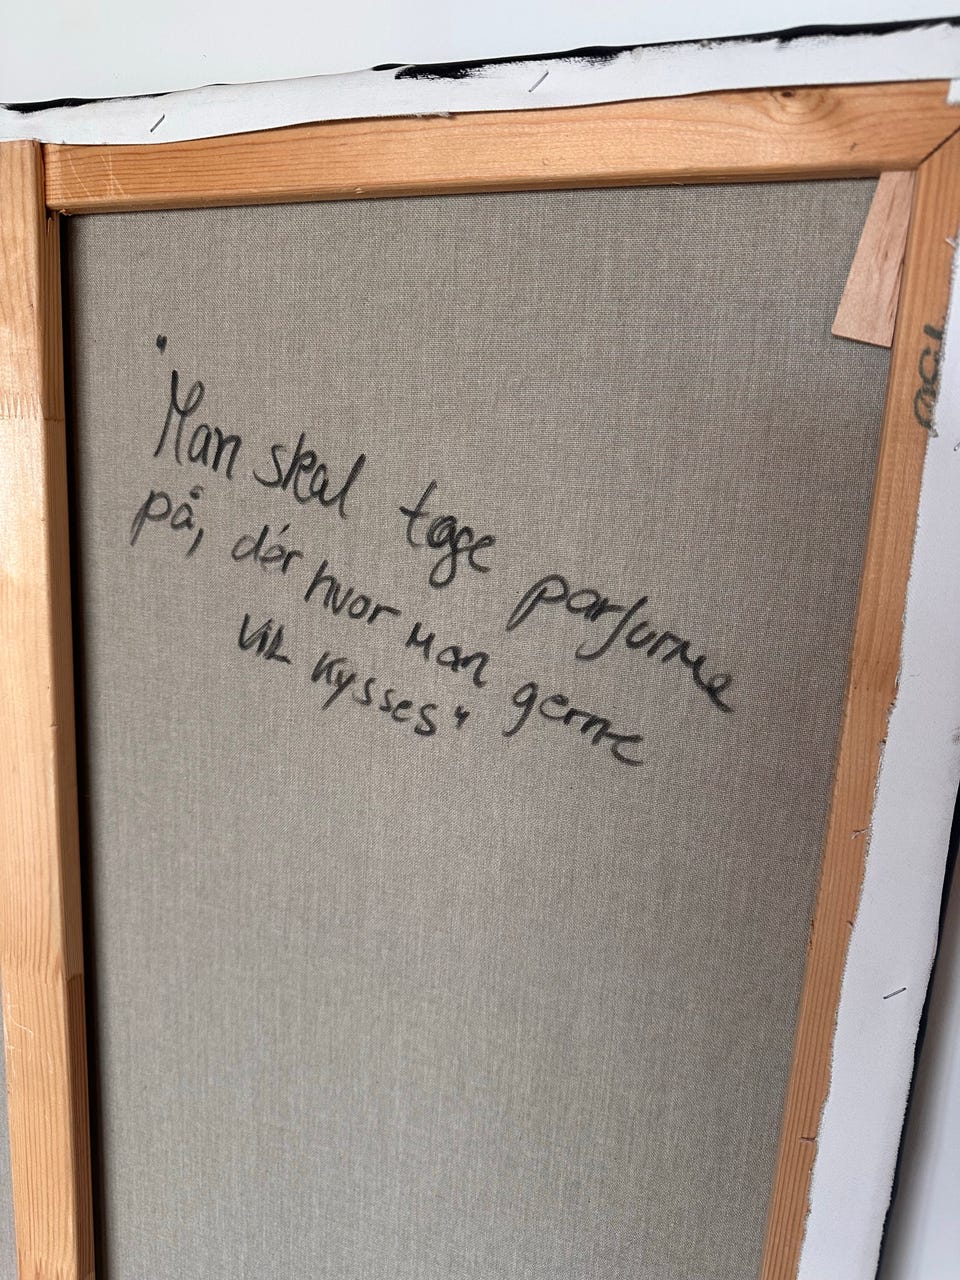 "Man skal tage parfume
på, dér hvor man gerne
vil kysses"